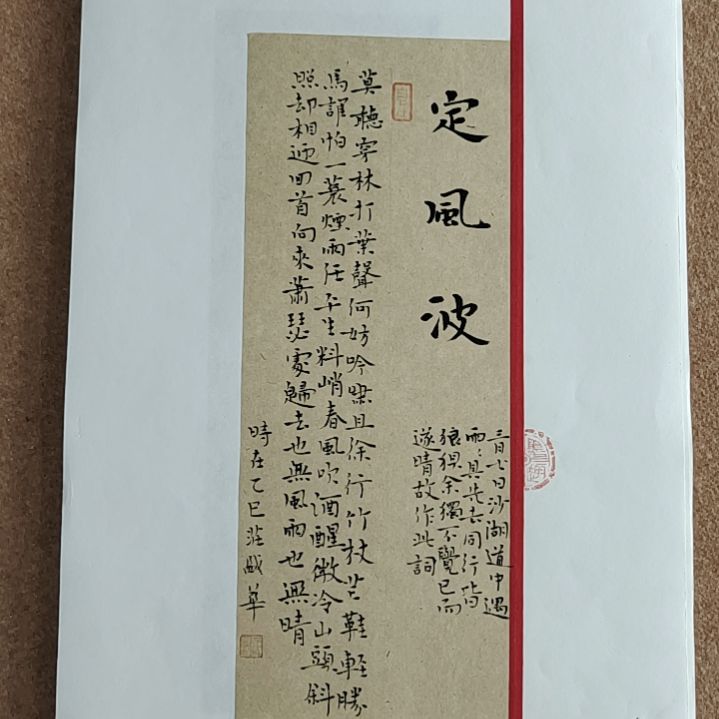 定風波
三月七日沙湖道中遇
雨〻具先去同行皆
狼狽余獨不覺已而
遂晴故作此詞
莫聽穿林打葉聲何妨吟嘯且徐行竹杖芒鞋輕勝
馬誰怕一蓑煙雨任平生料峭春風吹酒醒微冷山頭斜
照却相迎回首向來蕭瑟處歸去也無風雨也無晴
時在乙巳